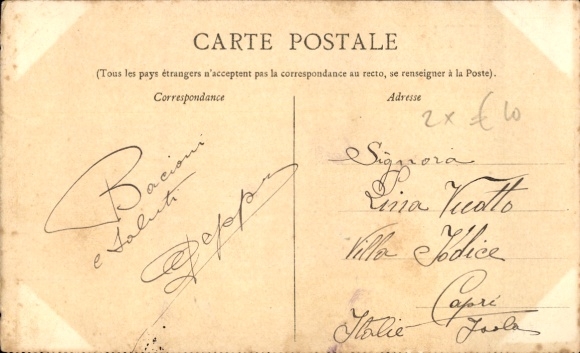 CARTE POSTALE
(Tous les pays étrangers n'acceptent pas la correspondance au recto, se renseigner à la Poste).
Correspondance
Adresse
2 x € 10
Bacioni
e saluti
Signora
Lina Vuotto
Villa Jódice
Capri
Italie Isola